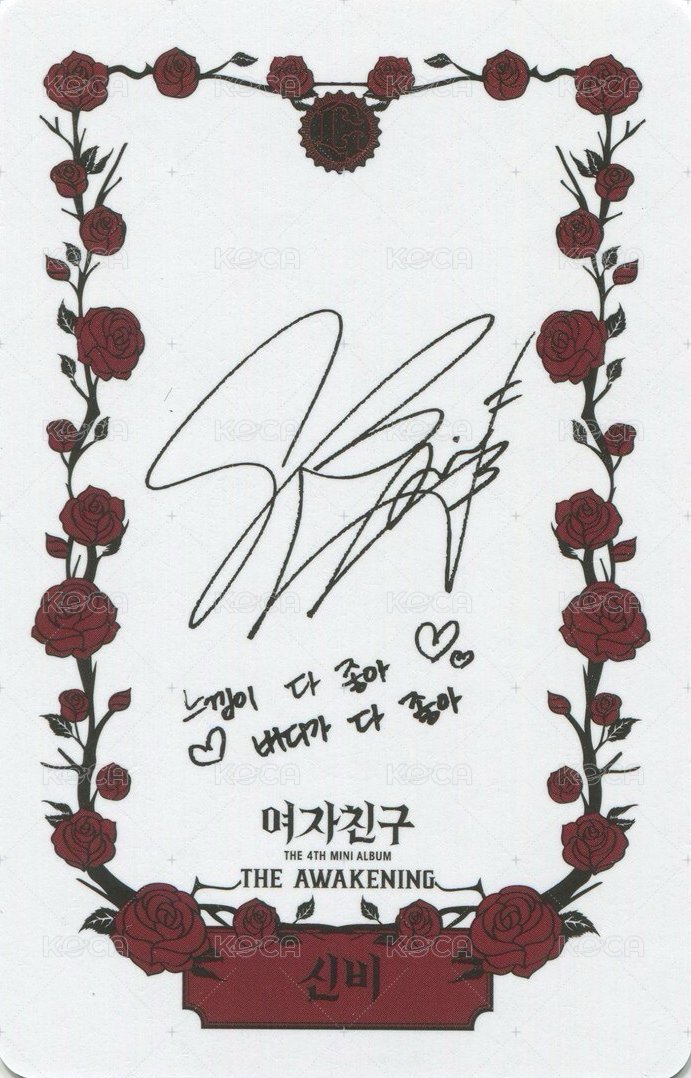 느낌이 다 좋아
버디가 다 좋아
여자친구
THE 4TH MINI ALBUM
THE AWAKENING
신비
KOCA